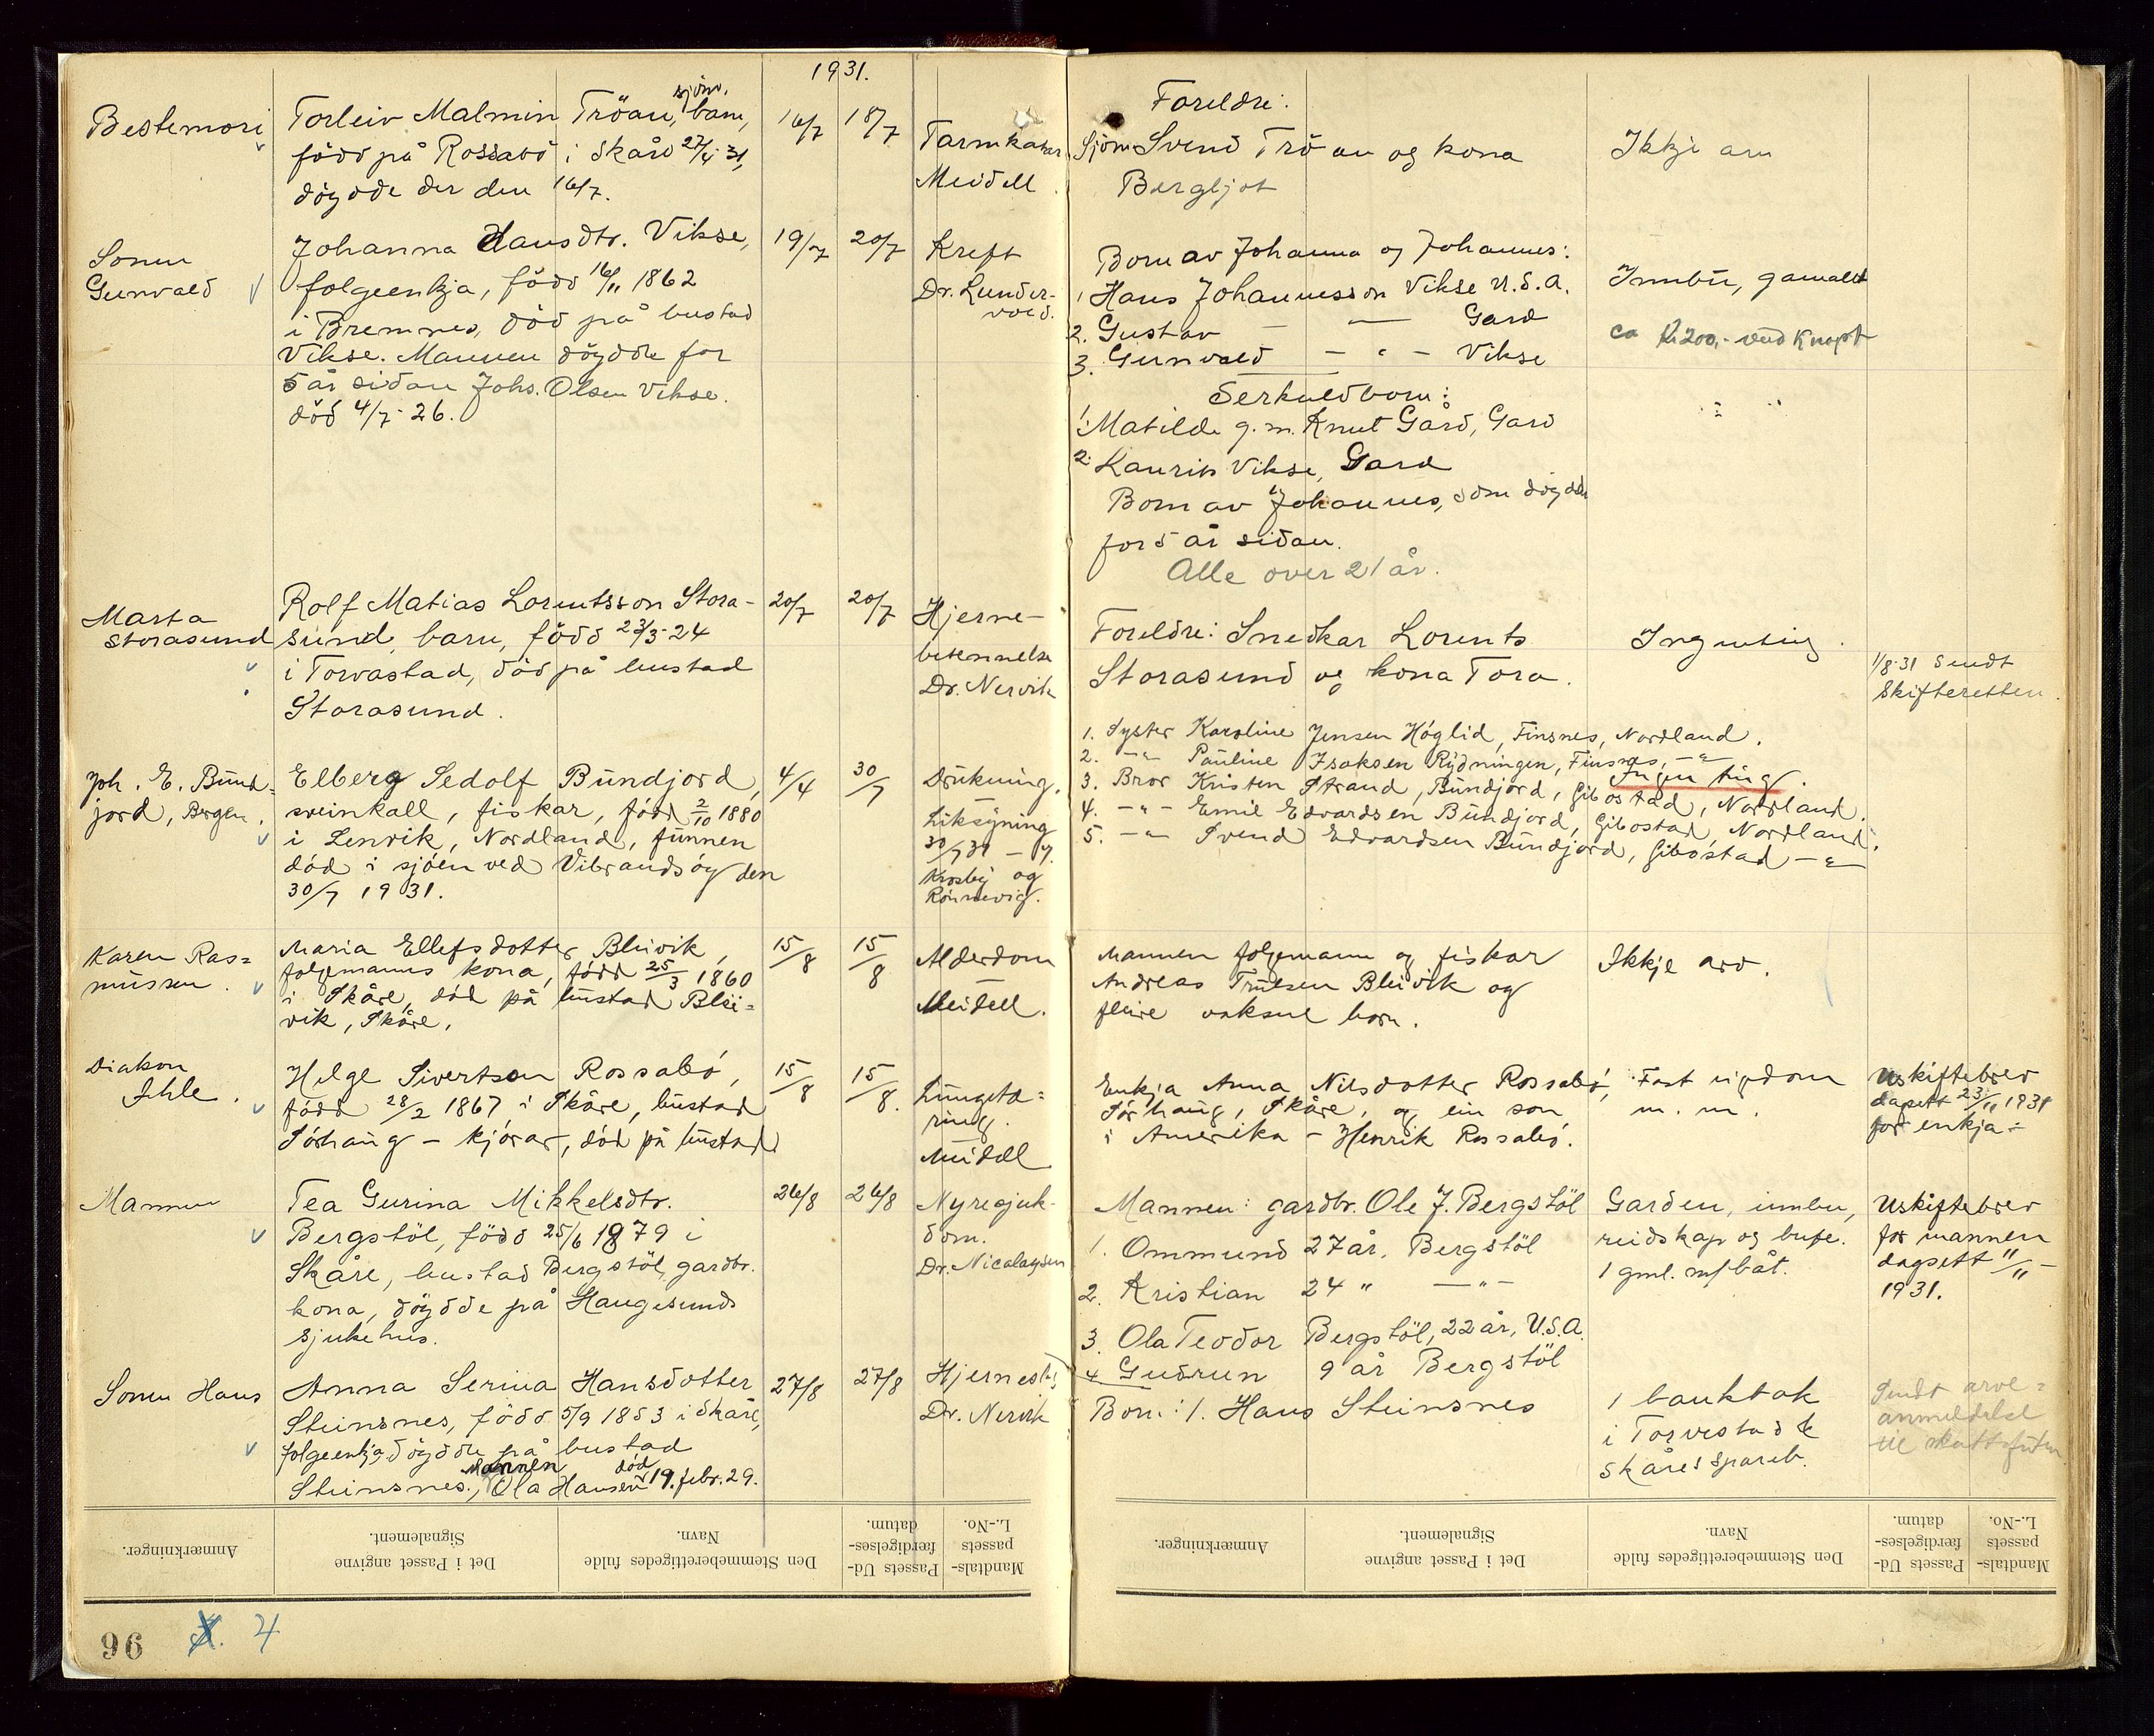 1931.
Bestemori
Torleiv Malmin Tröan, sjöm. barn,
född på Rossabö i Skåre 27/4 31,
döydde der den 16/7.
16/7
18/7
Tarmkatar
Meidell
Foreldre:
Sjöm Svend Tröan og kona
Bergljot
Ikkje arv
Sonen
Gunvald
Johanna Hansdtr. Vikse,
folgeenkja, född 16/11 1862
i Bremnes, död på bustad
Vikse. Mannen döydde for
5 år sidan Johs. Olsen Vikse.
död 4/7-26.
19/7
20/7
Kreft
Dr. Lunder-
vold.
Born av Johanna og Johannes:
1 Hans Johannesson Vikse U.S.A.
2. Gustav — — Gard
3. Gunvald — " — Vikse
Serkuldborn:
1. Matilde g.m. Knut Gård, Gard
2. Laurits Vikse, Gard
Born av Johannes, som döydde
for 5 år sidan.
Alle over 21 år.
Innbu, gamalt
ca kr 200,- verd knapt
Marta
Storasund
Rolf Matias Lorentsson Stora-
sund, barn, född 23/3-24
i Torvastad, död på bustad
Storasund.
20/7
20/7
Hjerne-
betennelse
Dr. Nervik
Foreldre: Snedkar Lorents
Storasund og kona Tora.
Ingenting.
1/8-31 sendt
Skifteretten.
Joh. E. Bund=
jord, Bergen.
Elberg Sedolf Bundjord,
sveinkall, fiskar, född 2/10 1880
i Lenvik, Nordland, funnen
död i sjöen ved Vibrandsöy den
30/7 1931.
4/4
30/7
Drukning.
Liksyning
30/7 31 – v.
Krosby og
Rönnevig.
1. Syster Karoline Jensen Höglid, Finsnes, Nordland.
2. —"— Pauline Isaksen Rydningen, Finsnes, —"—
3. Bror Kristen Strand, Bundjord, Gibostad, Nordland.
4. —"— Emil Edvardsen Bundjord, Gibostad, Nordland.
5. —"— Svend Edvardsen Bundjord, Gibostad —"—
Ingen ting.
Karen Ras=
mussen.
Maria Ellefsdotter Bleivik,
folgemanns kona, född 25/3 1860
i Skåre, död på bustad Blei=
vik, Skåre.
15/8
15/8
Alderdom
Meidell.
Mannen folgemann og fiskar
Andreas Trulsen Bleivik og
fleire vaksne born.
Ikkje arv.
Diakon
Ihle.
Helge Sivertson Rossabö,
född 28/2 1867 i Skåre, bustad
Sörhaug – kjörar, död på bustad
15/8
15/8.
Lungetæ=
ring.
Meidell
Enkja Anna Nilsdotter Rossabö,
Sörhaug, Skåre, og ein son
i Amerika – Henrik Rossabö.
Fast eigdom
m. m.
Uskiftebrev
dagsett 23/11 1931
for enkja
Mannen
Tea Gurina Mikkelsdtr.
Bergstöl, född 25/6 1879 i
Skåre, bustad Bergstöl, gardbr.
kona, döydde på Haugesunds
sjukehus.
26/8
26/8
Nyresjuk-
dom.
Dr. Nicolaysen
Mannen: gardbr. Ole J. Bergstöl
1. Ommund 27 år, Bergstöl
2. Kristian 24 " —"—
3. Ola Teodor Bergstöl, 22 år, U.S.A.
4 Gudrun 9 år Bergstöl
Garden, innbu,
reidskap og bufe.
1 gml. m/båt.
Uskiftebrev
for mannen
dagsett "/11 –
1931.
Sonen Hans
Anna Serina Hansdotter
Steinsnes, född 5/9 1853 i Skåre,
folgeenkja, döydde på bustad
Steinsnes., Mannen Ola Hansen död 19. febr. 29.
27/8
27/8
Hjernesl.
Dr. Nervik
Born: 1. Hans Steinsnes
1 banktok
i Torvestad &
Skåres Spareb.
Sendt arve=
anmeldelse
til skattefuten
Anmærkninger.
Det i Passet angivne
Signalement.
Den Stemmeberettigedes fulde
Navn.
Passets Ud-
færdigelses-
datum.
Mandtals-
passets
L.-No.
Anmærkninger.
Det i Passet angivne
Signalement.
Den Stemmeberettigedes fulde
Navn.
Passets Ud-
færdigelses-
datum.
Mandtals-
passets
L.-No.
96
4